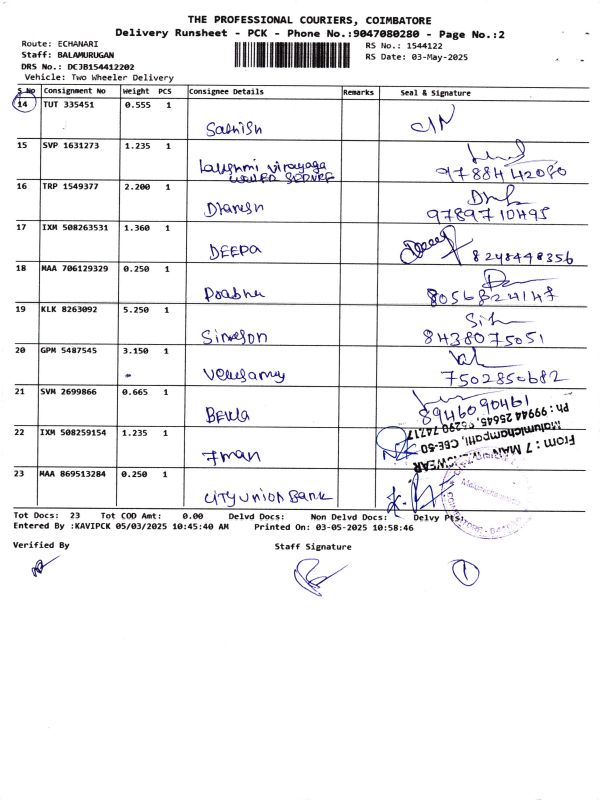 THE PROFESSIONAL COURIERS, COIMBATORE
Delivery Runsheet - PCK - Phone No.:9047080280 - Page No.:2
Route: ECHANARI
RS No.: 1544122
Staff: BALAMURUGAN
RS Date: 03-May-2025
DRS No.: DCJB154412202
Vehicle: Two Wheeler Delivery
S No Consignment No Weight PCS Consignee Details Remarks Seal & Signature
14 TUT 335451 0.555 1
Sathish
15 SVP 1631273 1.235 1
Lakshmi
9788442080
16 TRP 1549377 2.200 1
Dharesh
9789710495
17 IXM 508263531 1.360 1
DEEPA 8248448356
18 MAA 706129329 0.250 1
Prabhu 8056824147
19 KLK 8263092 5.250 1
Simeson 8438075051
20 GPM 5487545 3.150 1
7502850682
21 SVM 2699866 0.665 1
8946090461
22 IXM 508259154 1.235 1
7man
From : 7 MAN
Malumichampatti, CBE-50
Ph : 99944 25645,
23 MAA 869513284 0.250 1
CITY UNION BANK
Tot Docs: 23 Tot COD Amt: 0.00 Delvd Docs: Non Delvd Docs: Delvy Pts:
Entered By :KAVIPCK 05/03/2025 10:45:40 AM Printed On: 03-05-2025 10:58:46
Verified By Staff Signature
1